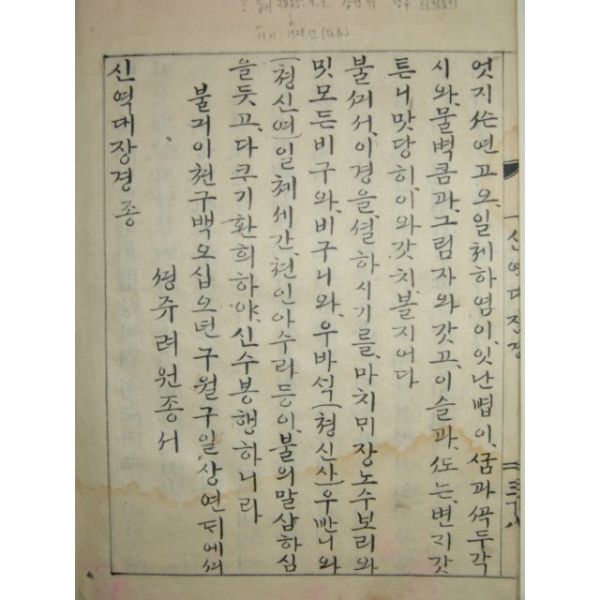 엇지쓰연고오,일체하염이,잇난뻡이,꿈과꼭두각
시와,물벽콤과,그림자와갓고,이슬과,또는,변기갓
튼니맛당히,이와갓치볼지어다
불께서,이경을,셜하시기를,마치미장노수보리와
밋모든비구와,비구니와,우바쇡(쳥신사)우빤니와
(쳥신여)일체세간,쳔인아수라등이,불의말삼하심
을듯고,다크기환희하야,신수봉행하니라
불거이쳔구백오십오년구월구일,상연뒤에써
셩쥬려원종서
신역대장경종
신역대장경